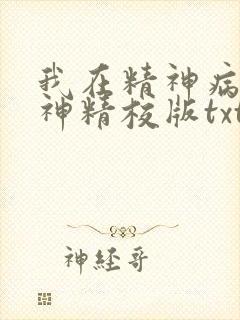 我在精神病
神精校版txt
神经哥